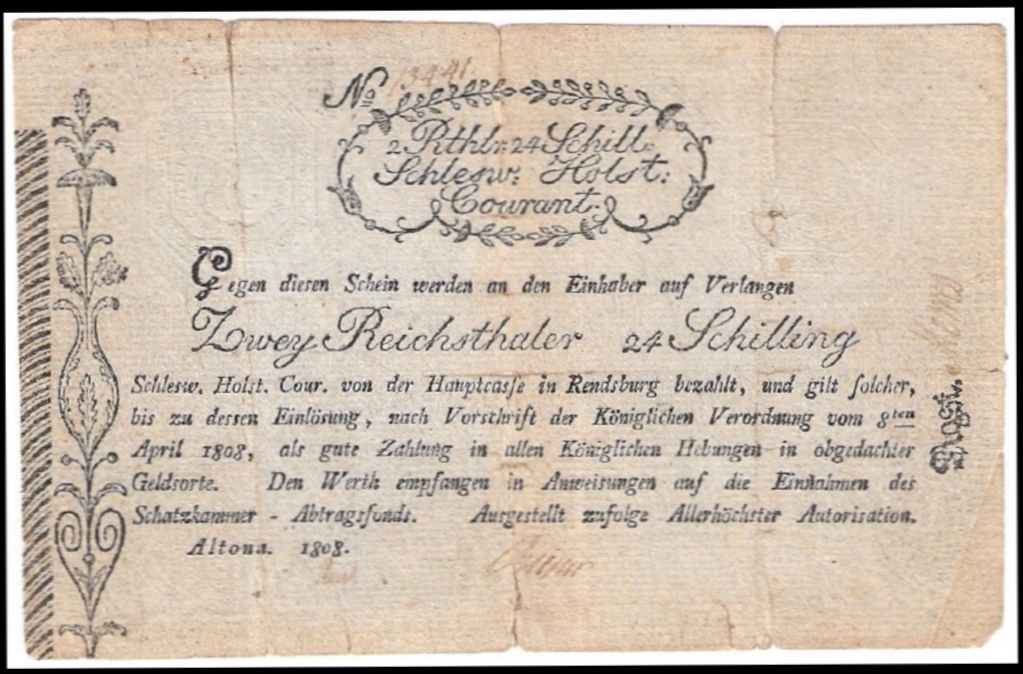 No 13441
2 Rthlr: 24 Schill:
Schlesw: Holst:
Courant.
Gegen diesen Schein werden an den Einhaber auf Verlangen
Zwey Reichsthaler 24 Schilling
Schlesw. Holst. Cour. von der Hauptcasse in Rendsburg bezahlt, und gilt solcher,
bis zu dessen Einlösung, nach Vorschrift der Königlichen Verordnung vom 8ten
April 1808, als gute Zahlung in allen Königlichen Hebungen in obgedachter
Geldsorte. Den Werth empfangen in Anweisungen auf die Einnahmen des
Schatzkammer - Abtragsfonds. Ausgestellt zufolge Allerhöchster Autorisation.
Altona. 1808.
Nost.